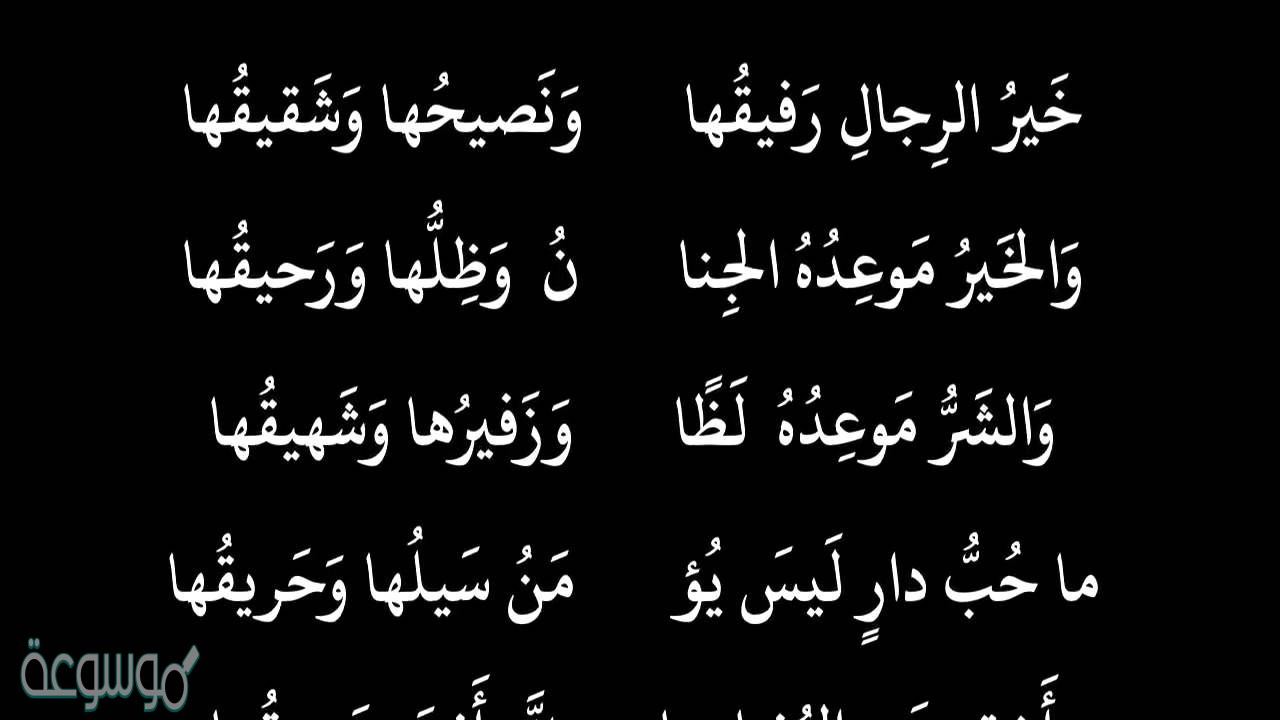 خَيرُ الرِجالِ رَفيقُها وَنَصيحُها وَشَقيقُها
وَالخَيرُ مَوعِدُهُ الجِنا نُ وَظِلُّها وَرَحيقُها
وَالشَرُّ مَوعِدُهُ لَظًا وَزَفيرُها وَشَهيقُها
ما حُبُّ دارٍ لَيسَ يُؤ مَنُ سَيلُها وَحَريقُها
موسوعة